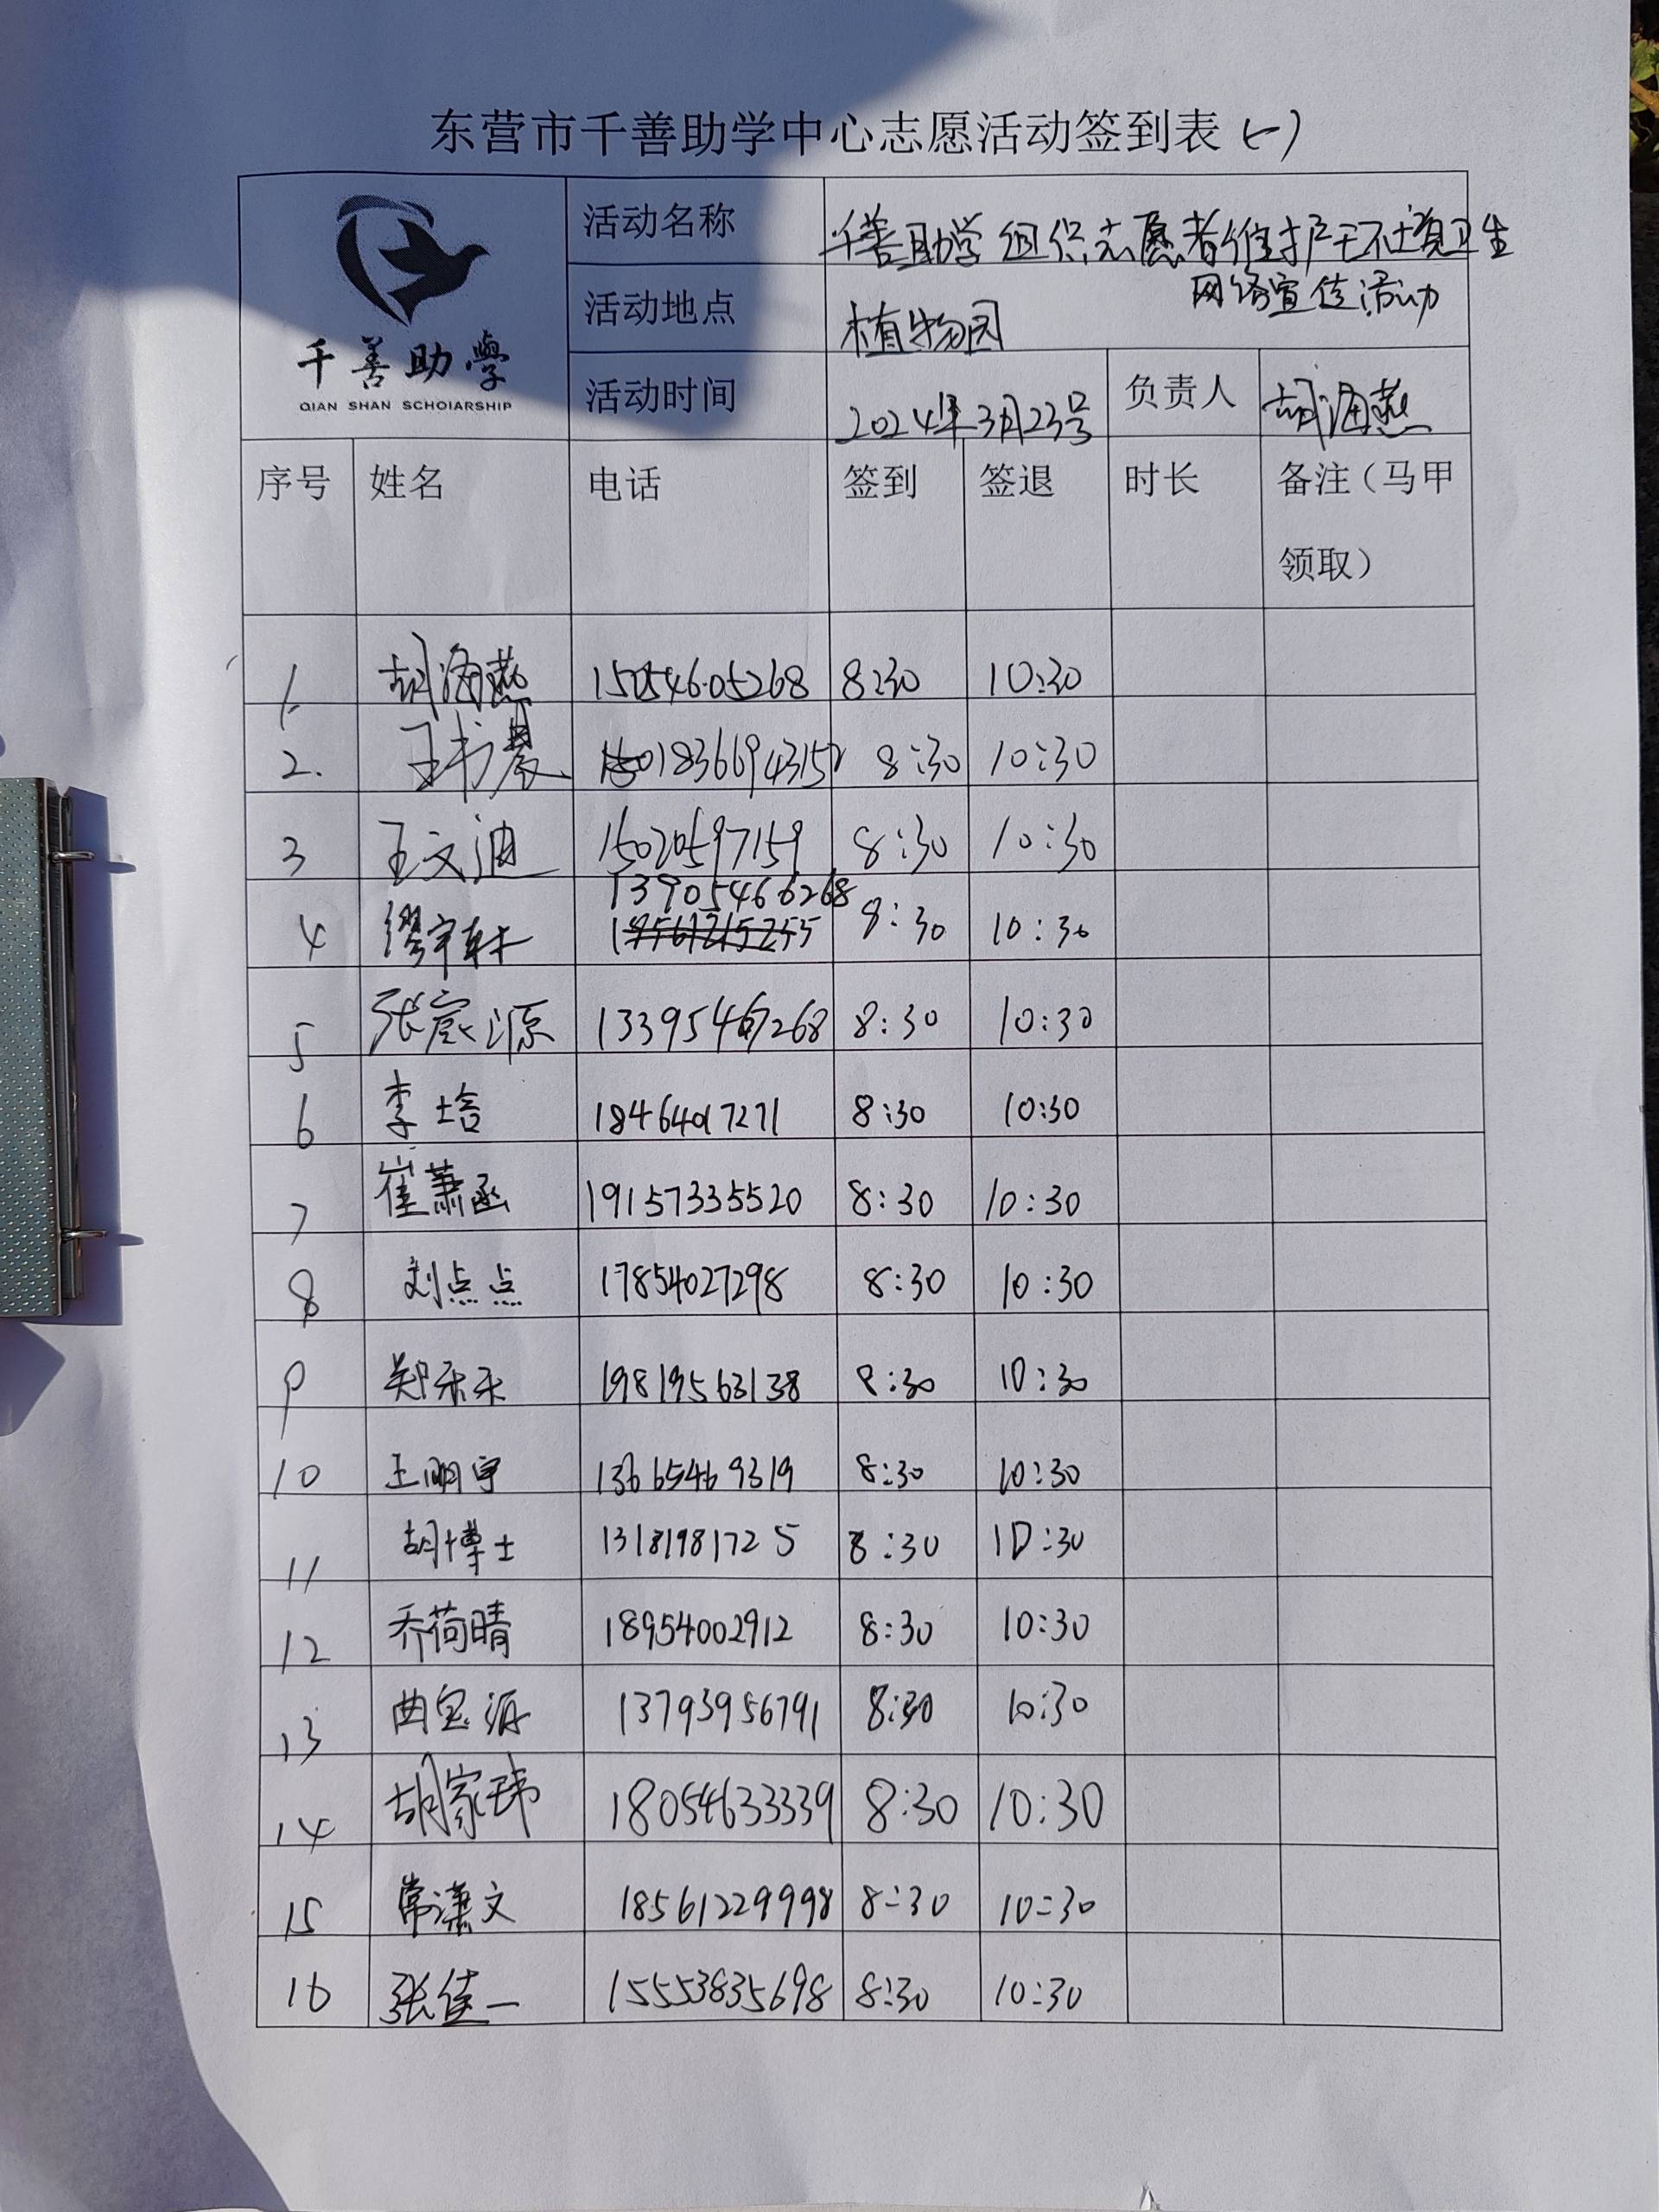 东营市千善助学中心志愿活动签到表(一)
千善助學
QIAN SHAN SCHOIARSHIP
活动名称 千善助学组织志愿者维护环境卫生
网络宣传活动
活动地点 植物园
活动时间 2024年3月23号 负责人 胡海燕
序号 姓名 电话 签到 签退 时长 备注（马甲
领取）
1. 胡海燕 15054605268 8:30 10:30
2. 王书晨 18366943152 8:30 10:30
3 王文迪 15020597159 8:30 10:30
13905466268
4 缪宇轩 18561215255 8:30 10:30
5 张宸源 13395467268 8:30 10:30
6 李培 18464017271 8:30 10:30
7 崔萧函 19157335520 8:30 10:30
8 刘点点 17854027298 8:30 10:30
9 郑禾禾 19819563138 8:30 10:30
10 王明宇 13665469319 8:30 10:30
11 胡博士 13181981725 8:30 10:30
12 乔荷晴 18954002912 8:30 10:30
13 曲宝源 13793956791 8:30 10:30
14 胡家玮 18054633339 8:30 10:30
15 常潇文 18561229998 8:30 10:30
16 张佳一 15553835698 8:30 10:30